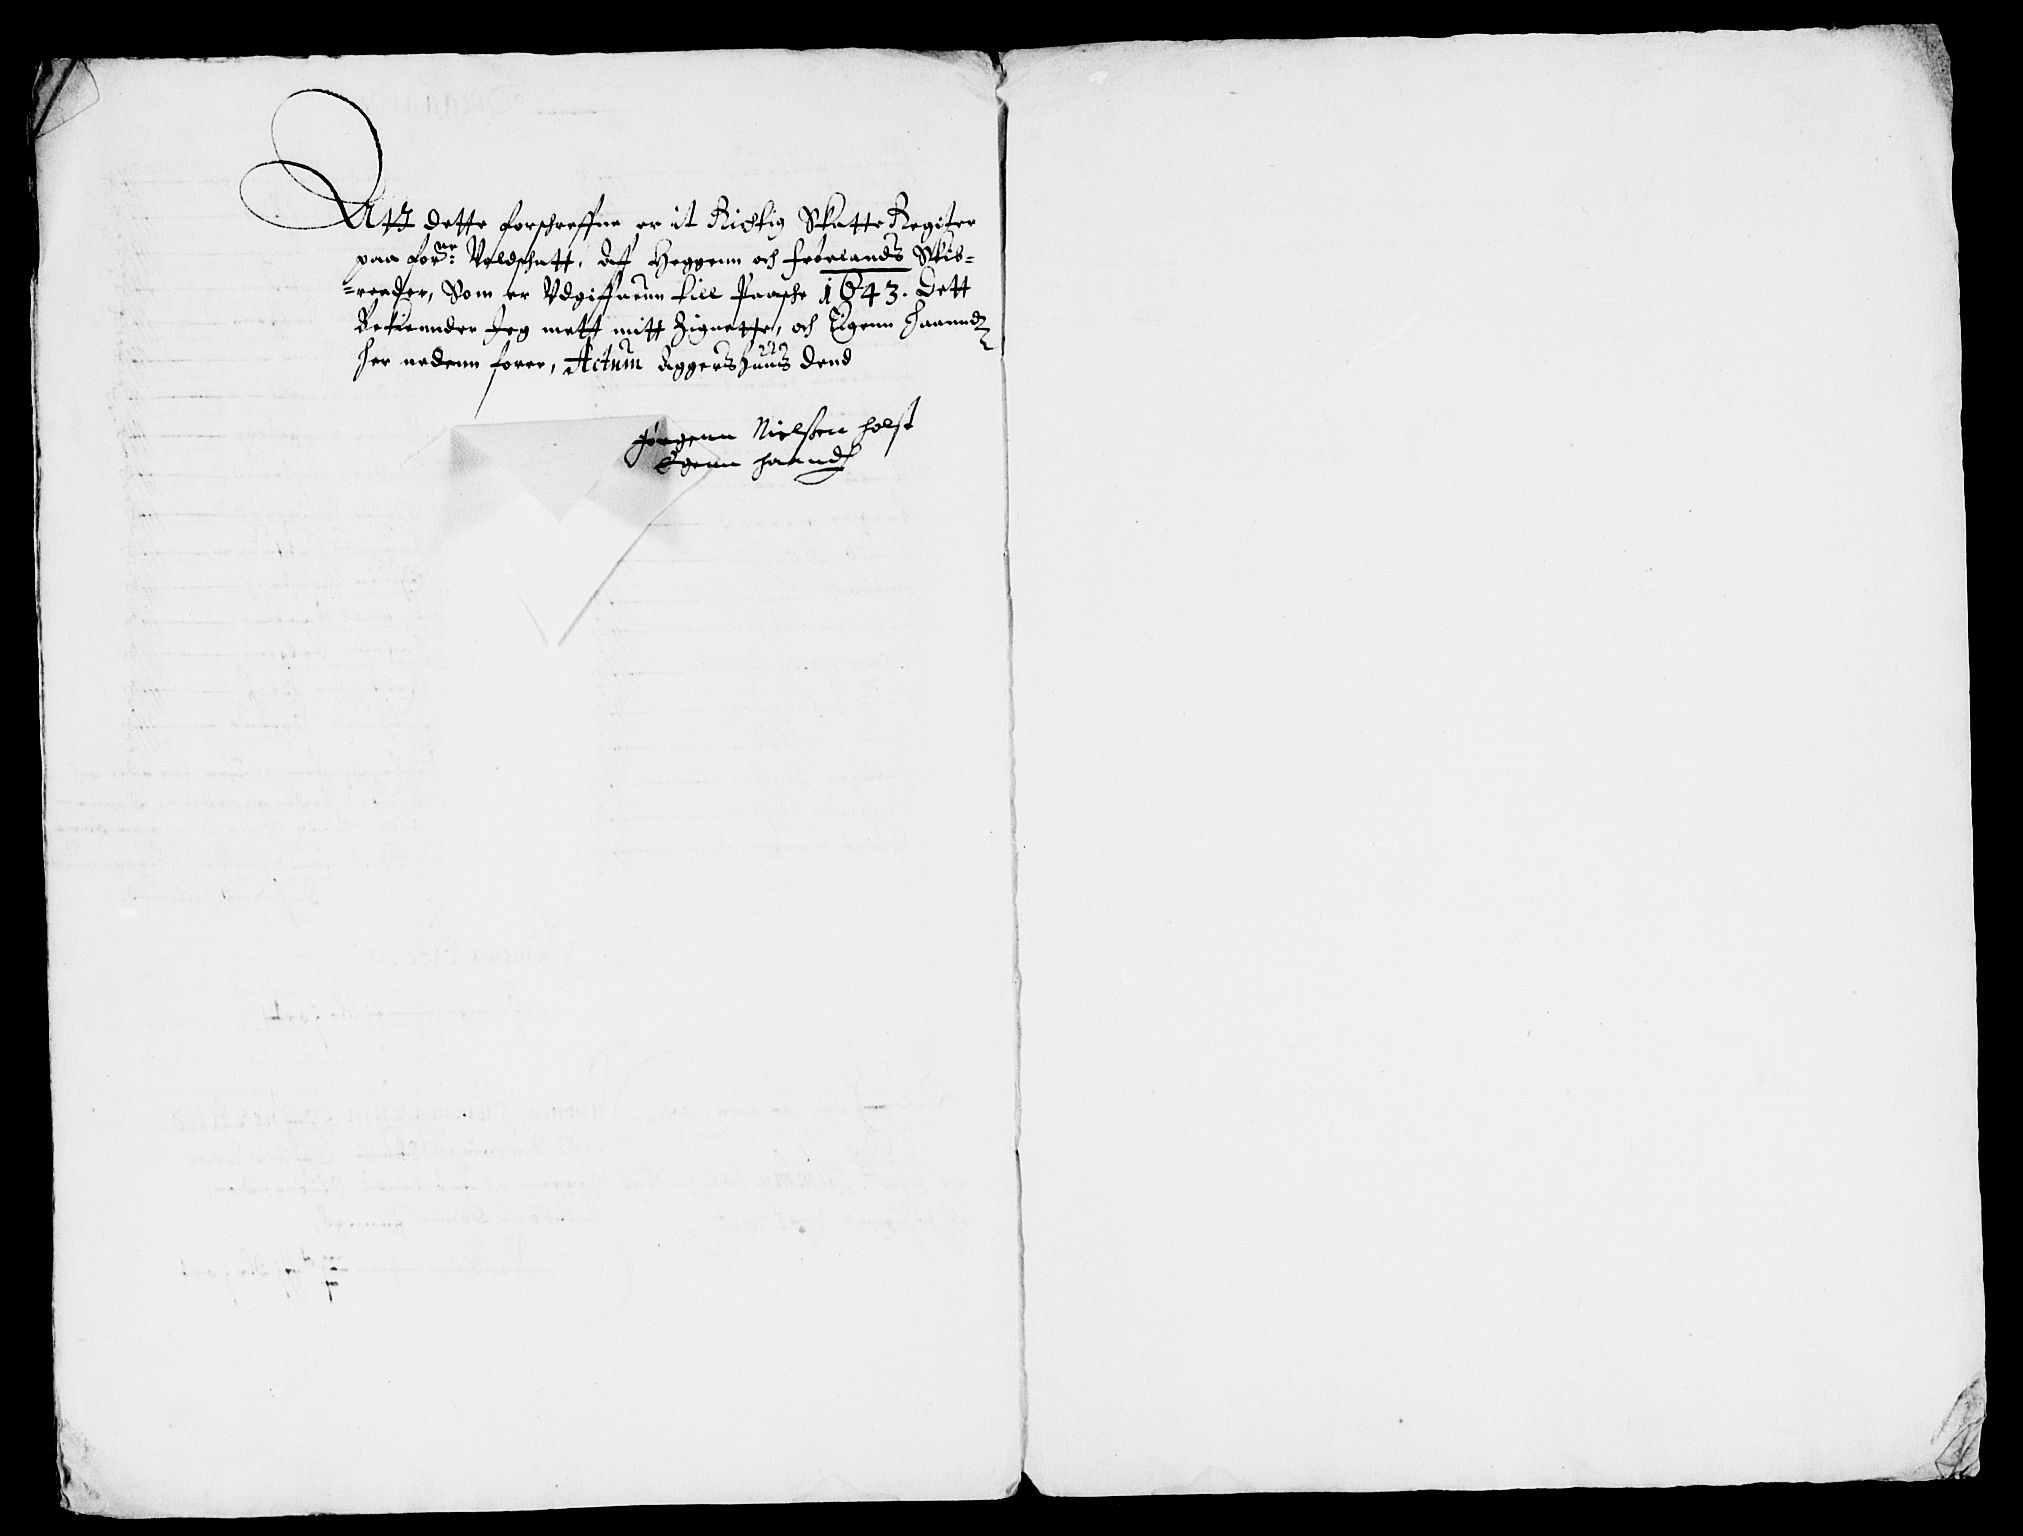 Att dette forschreffne er it Richtig Skatte Regiter
paa forne: Voldschatt, Aff Heggenn och Frølands Skib-
=reeder, Som er Vdgiffuenn till Paasche 1643. Dett
Bekiennder Jeg mett mitt Zignette, och Eigenn Haanndt
her nedenn forre, Actum Aggershuus dend
Jørgenn Nielssen Holst
Egenn haandt